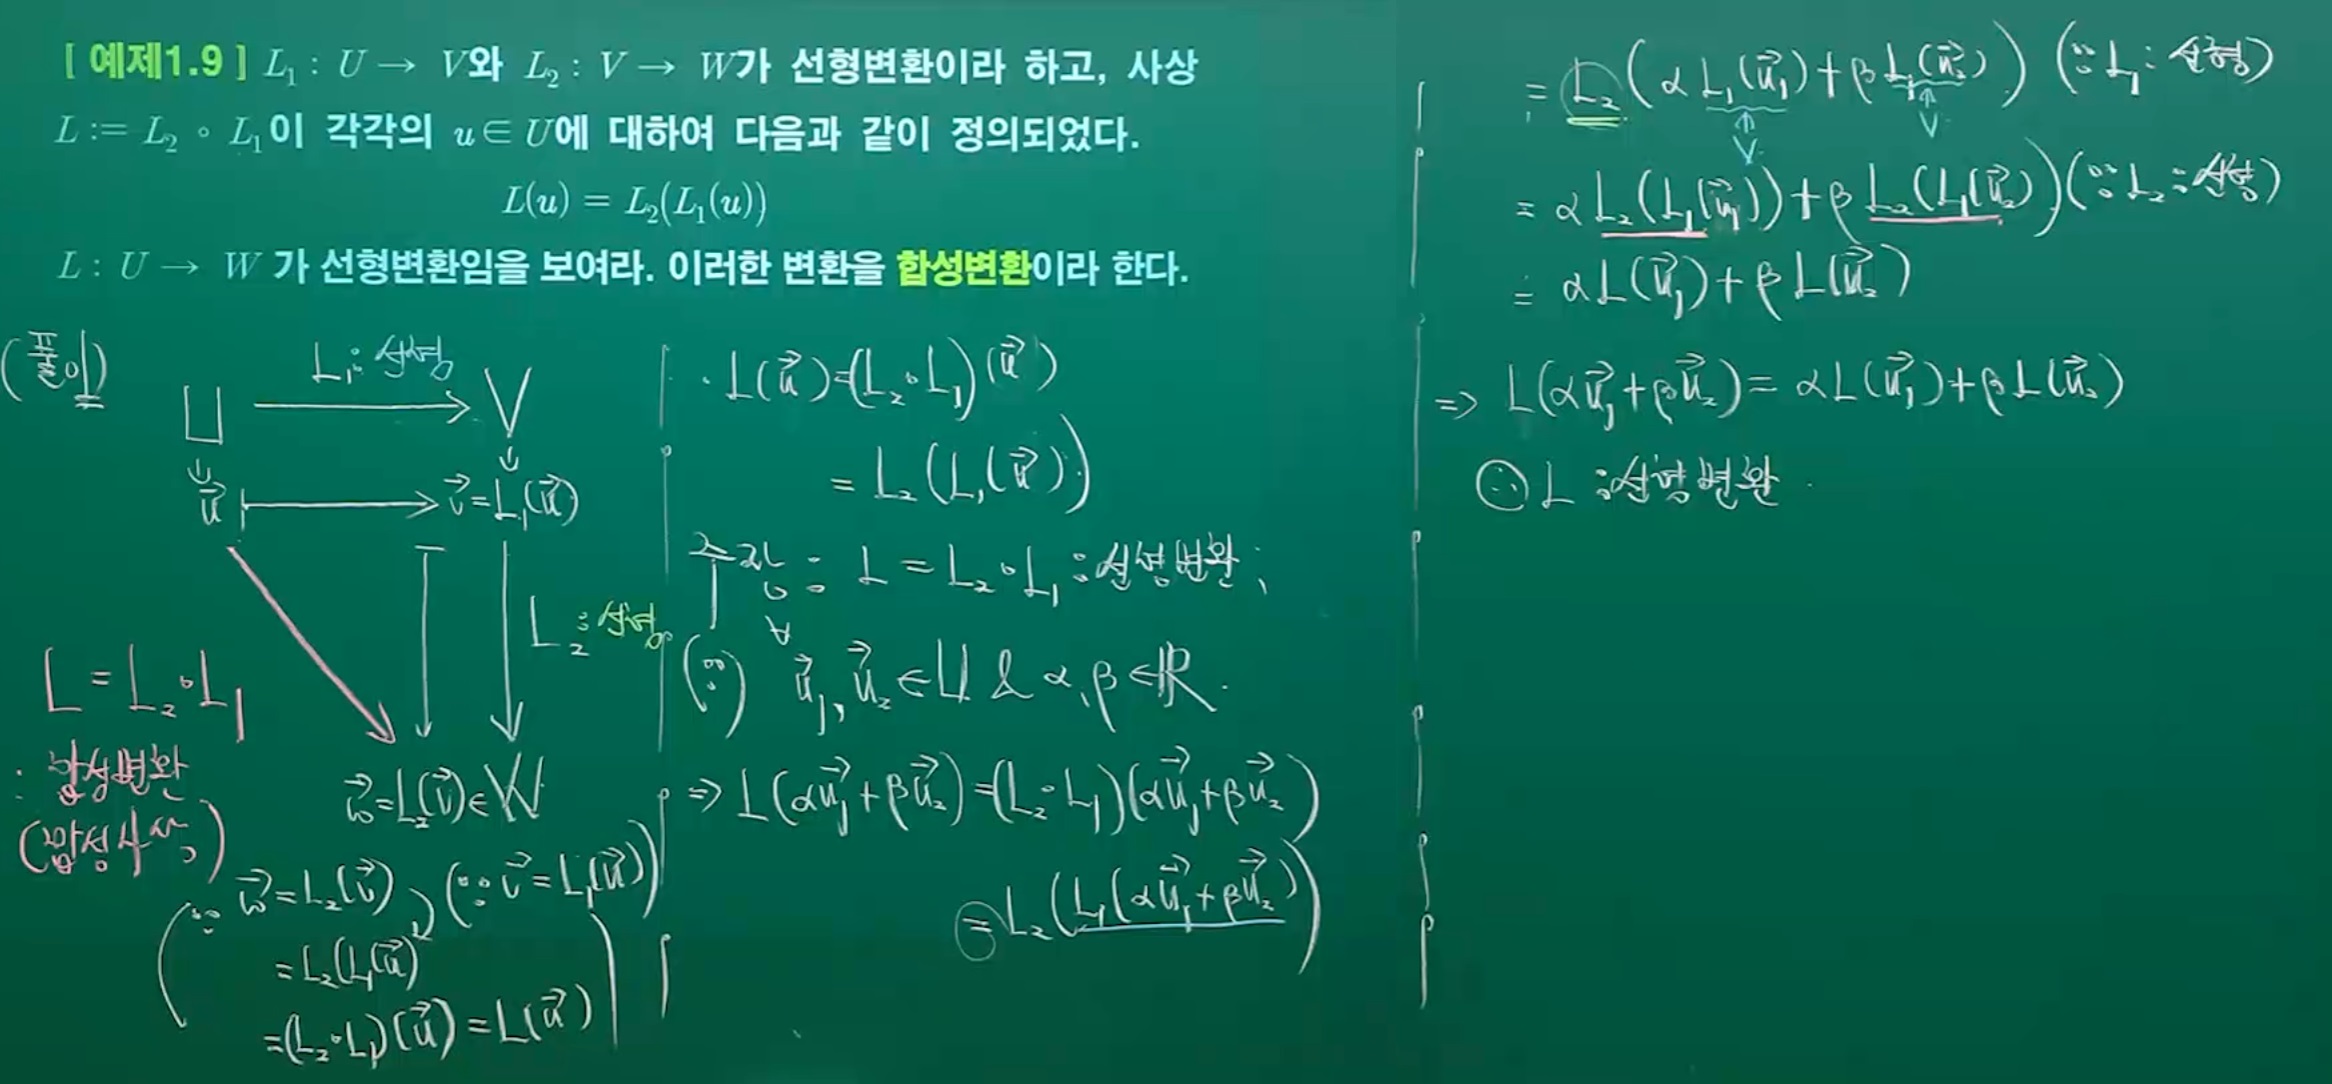 [ 예제1.9 ] L₁ : U → V와 L₂ : V → W가 선형변환이라 하고, 사상
L := L₂ ∘ L₁이 각각의 u ∈ U에 대하여 다음과 같이 정의되었다.
L(u) = L₂(L₁(u))
L : U → W 가 선형변환임을 보여라. 이러한 변환을 합성변환이라 한다.
(풀이)
L₁ : 선형
U → V
u⃗ ↦ v⃗ = L₁(u⃗)
L₂ : 선형
L = L₂ ∘ L₁
: 합성변환
(합성사상)
w⃗ = L₂(v⃗) ∈ W
(∵ w⃗ = L₂(v⃗) (∵ v⃗ = L₁(u⃗))
= L₂(L₁(u⃗)
= (L₂ ∘ L₁)(u⃗) = L(u⃗)
· L(u⃗) = (L₂ ∘ L₁)(u⃗)
= L₂(L₁(u⃗))
주장 : L = L₂ ∘ L₁ : 선형변환 ;
(∵) ∀ u⃗₁, u⃗₂ ∈ U & α, β ∈ ℝ.
⇒ L(αu⃗₁ + βu⃗₂) = (L₂ ∘ L₁)(αu⃗₁ + βu⃗₂)
= L₂(L₁(αu⃗₁ + βu⃗₂))
= L₂(αL₁(u⃗₁) + βL₁(u⃗₂)) (∵ L₁ : 선형)
V V
= αL₂(L₁(u⃗₁)) + βL₂(L₁(u⃗₂)) (∵ L₂ : 선형)
= αL(u⃗₁) + βL(u⃗₂)
⇒ L(αu⃗₁ + βu⃗₂) = αL(u⃗₁) + βL(u⃗₂)
∴ L : 선형변환.